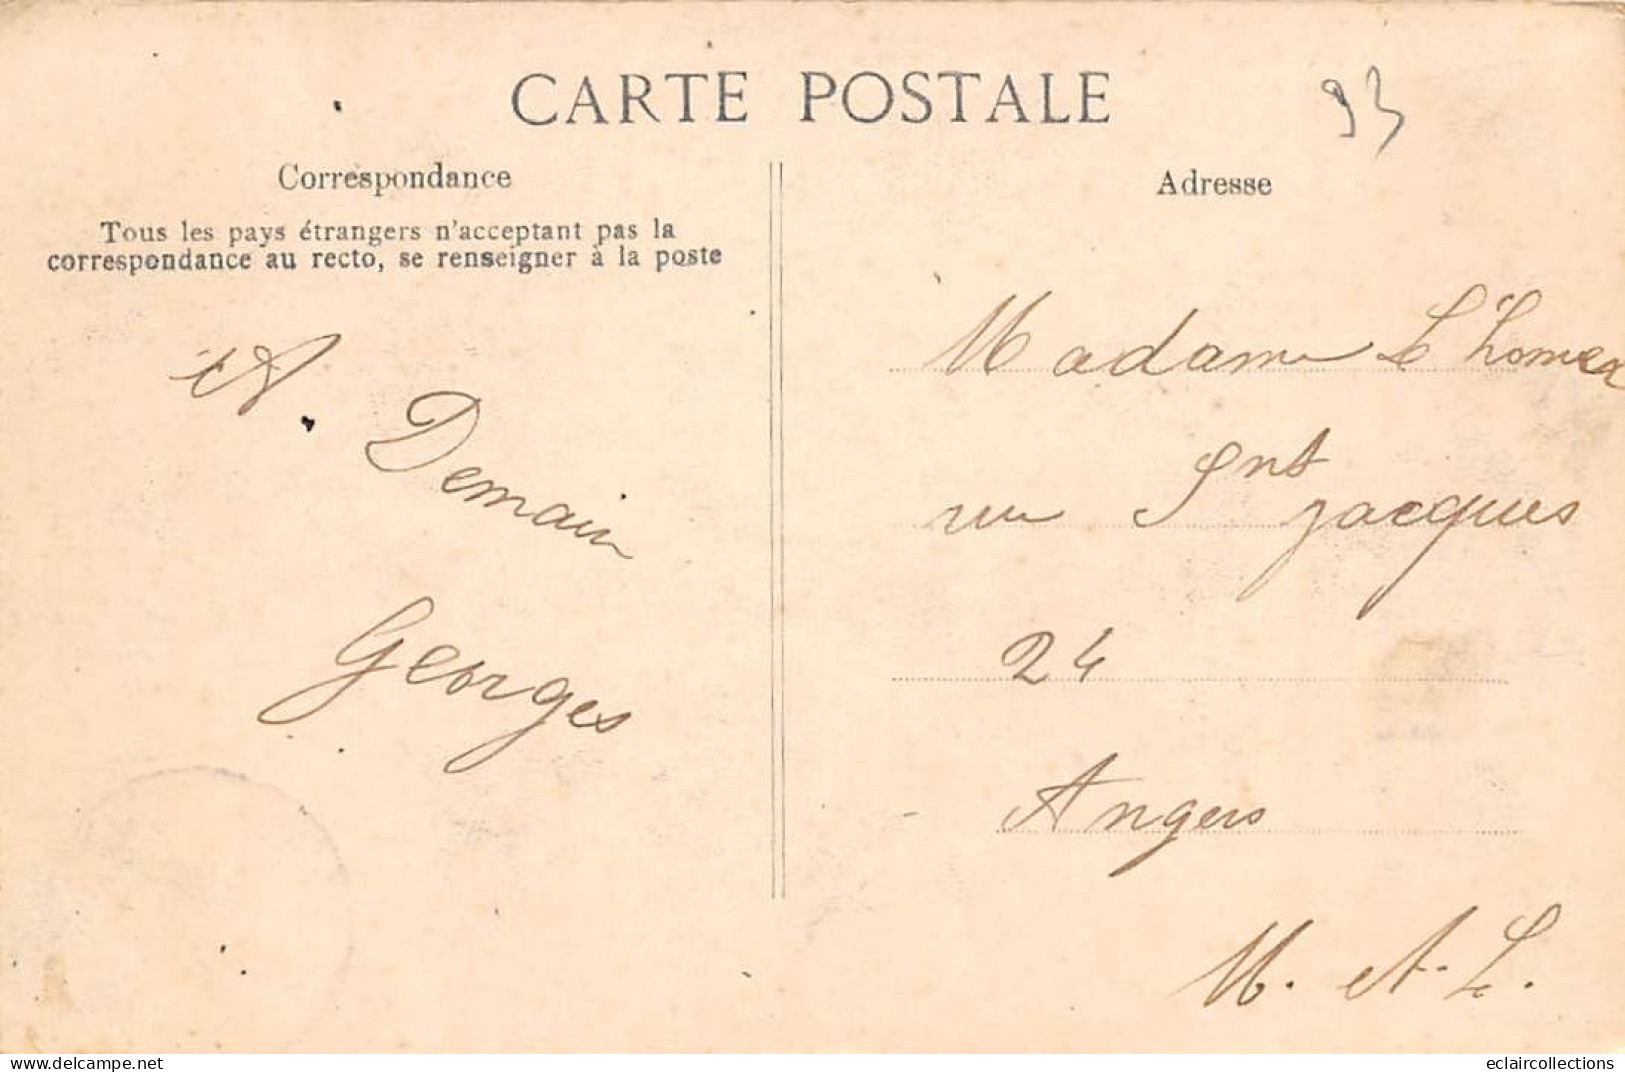 CARTE POSTALE
93
Correspondance
Tous les pays étrangers n'acceptant pas la
correspondance au recto, se renseigner à la poste
A.
Demain
Georges
Adresse
Madame
rue Snt Jacques
24
Angers
M. et L.
www.delcampe.net
eclaircollections